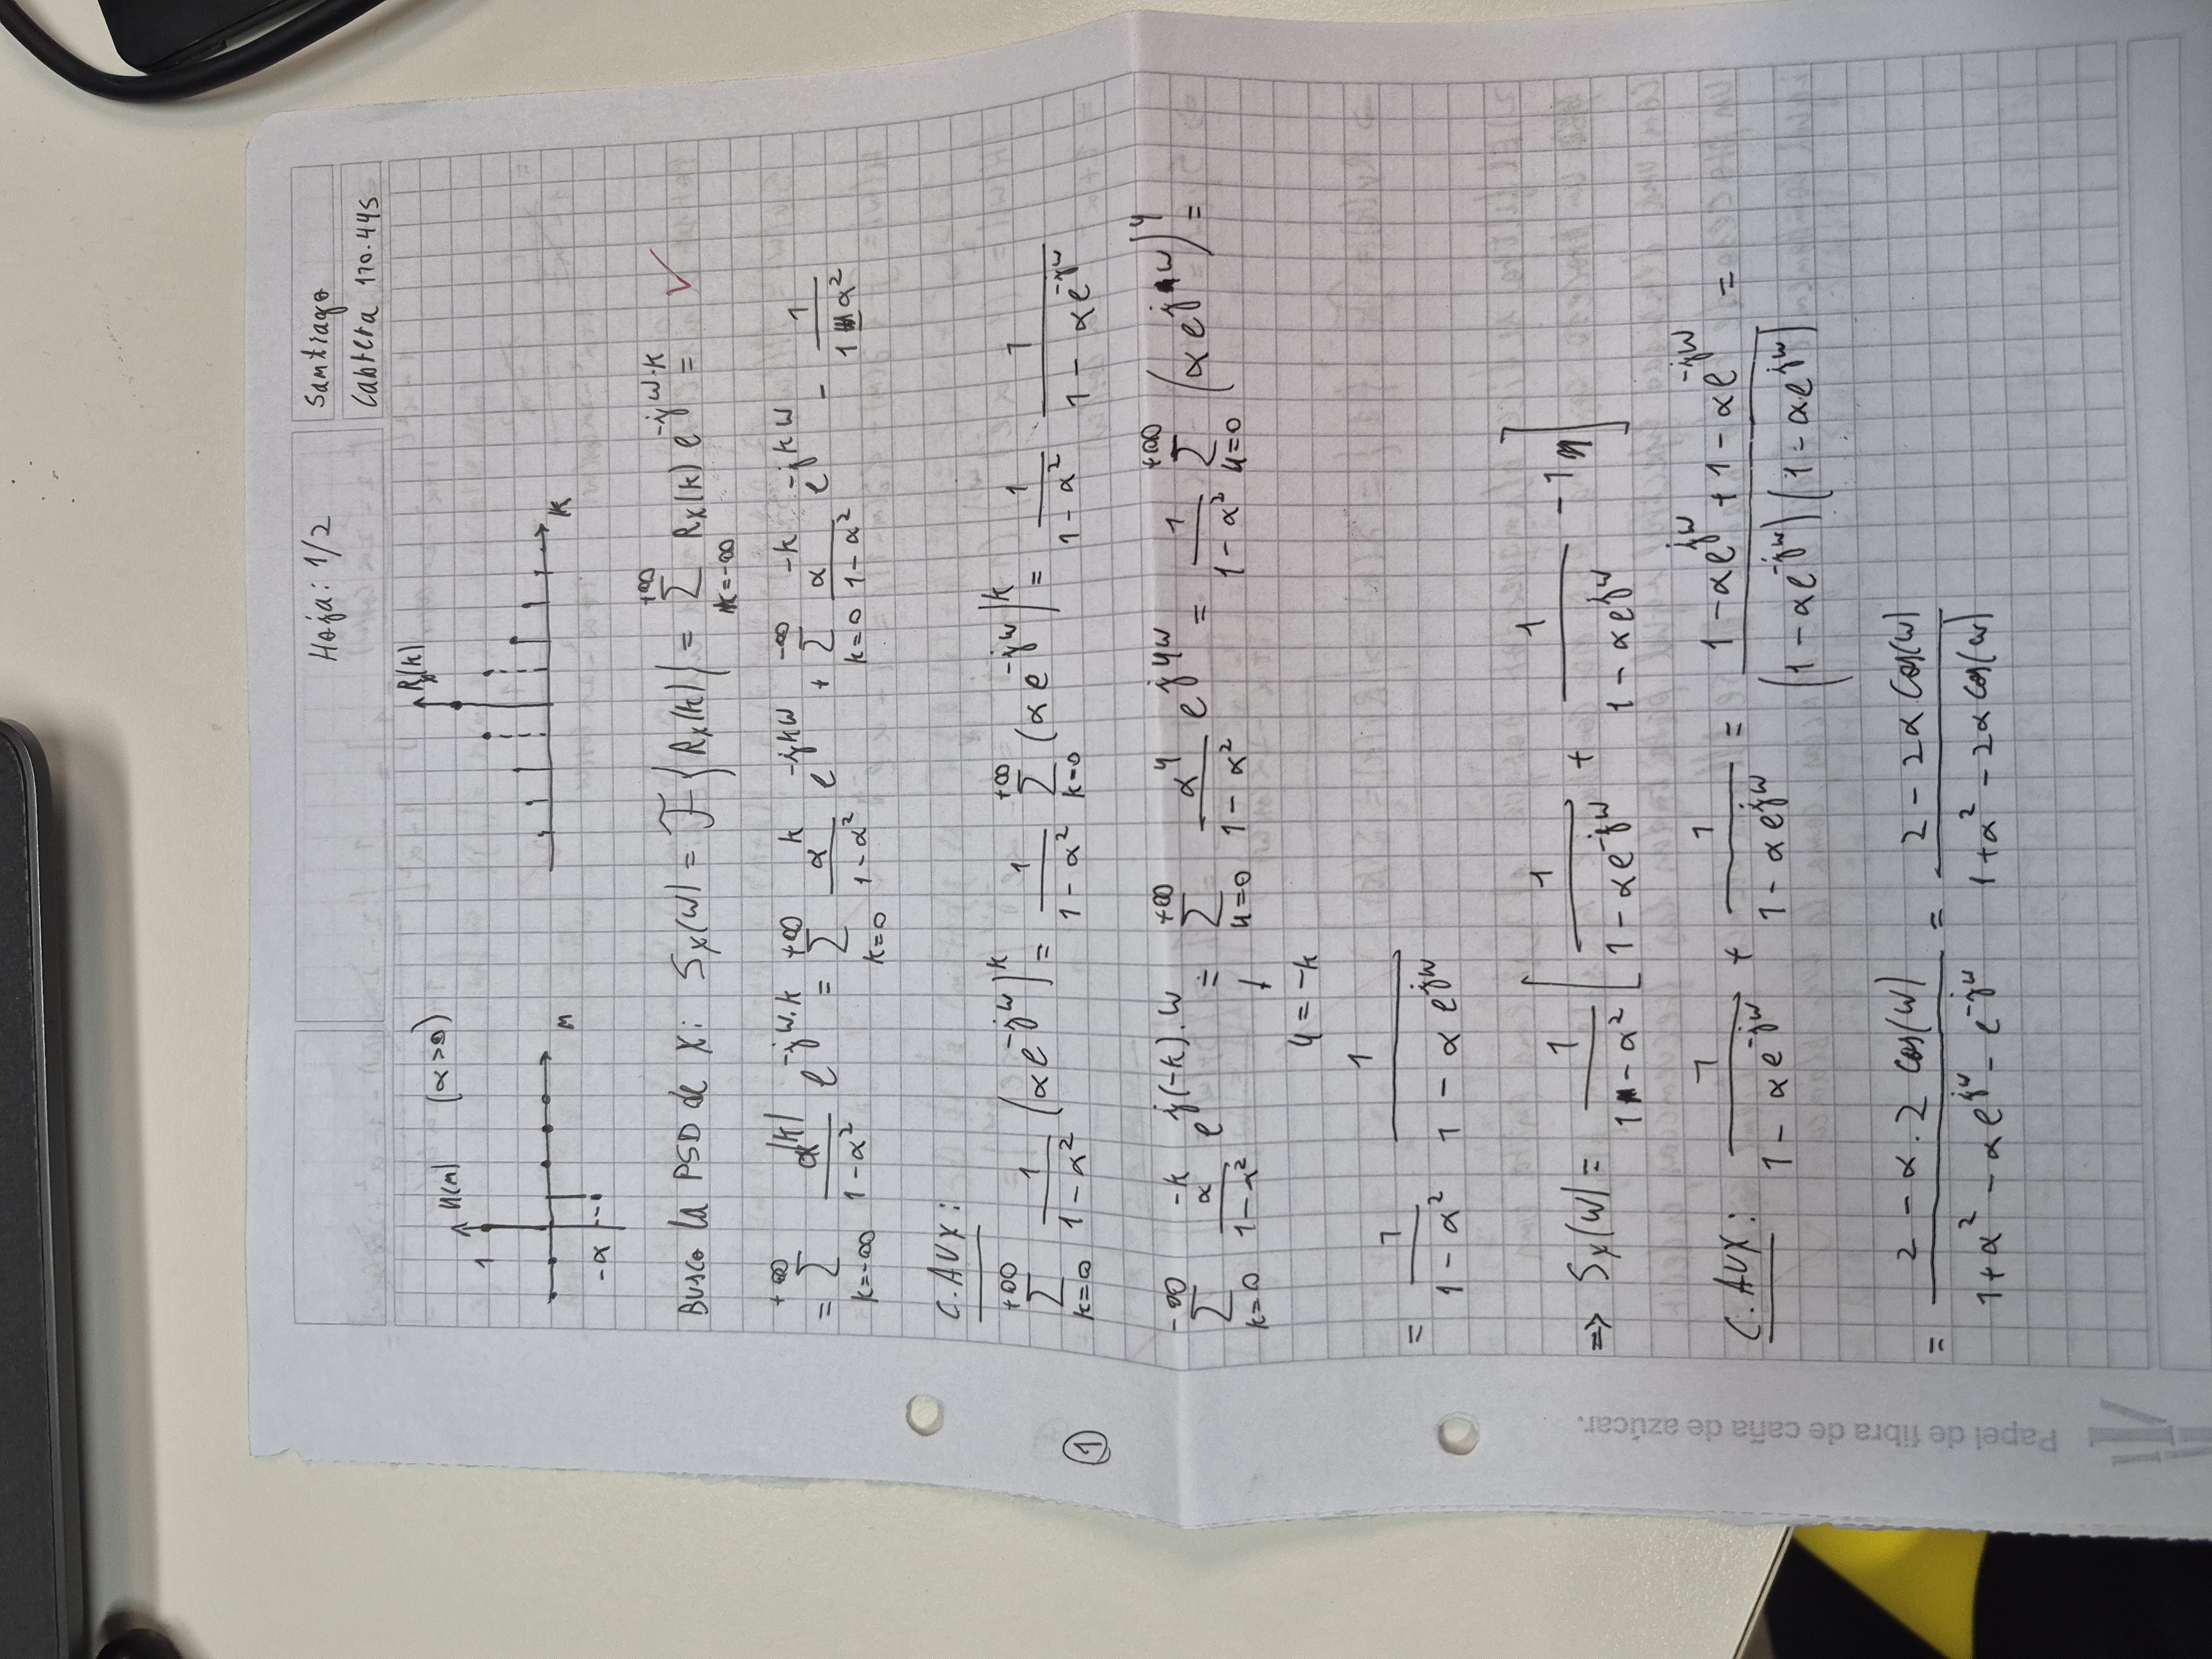 Hoja: 1/2
Santiago
Cabrera 110.445
h(n) (α>0)
1
n
-α
Rx(k)
k
Busco la PSD de X: Sx(ω) = F{Rx(k)} = Σ_{k=-∞}^{+∞} Rx(k) e^{-jω·k} = ✓
= Σ_{k=-∞}^{+∞} α^{|k|}/(1-α²) e^{-jω·k} = Σ_{k=0}^{+∞} α^k/(1-α²) e^{-jkω} + Σ_{k=0}^{-∞} α^{-k}/(1-α²) e^{-jkω} - 1/(1-α²)
C. AUX:
Σ_{k=0}^{+∞} 1/(1-α²) (αe^{-jω})^k = 1/(1-α²) Σ_{k=0}^{+∞} (αe^{-jω})^k = 1/(1-α²) · 1/(1-αe^{-jω})
①
Σ_{k=0}^{-∞} α^{-k}/(1-α²) e^{j(-k)·ω} = Σ_{u=0}^{+∞} α^u/(1-α²) e^{juω} = 1/(1-α²) Σ_{u=0}^{+∞} (αe^{jω})^u =
u = -k
= 1/(1-α²) 1/(1-αe^{jω})
⇒ Sx(ω) = 1/(1-α²) [1/(1-αe^{-jω}) + 1/(1-αe^{jω}) - 1]
C. AUX: 1/(1-αe^{-jω}) + 1/(1-αe^{jω}) = (1-αe^{jω}+1-αe^{-jω})/((1-αe^{-jω})(1-αe^{jω})) =
= (2-α·2 cos(ω))/(1+α²-αe^{jω}-e^{-jω}) = (2-2α cos(ω))/(1+α²-2α cos(ω))
Papel de fibra de caña de azúcar.